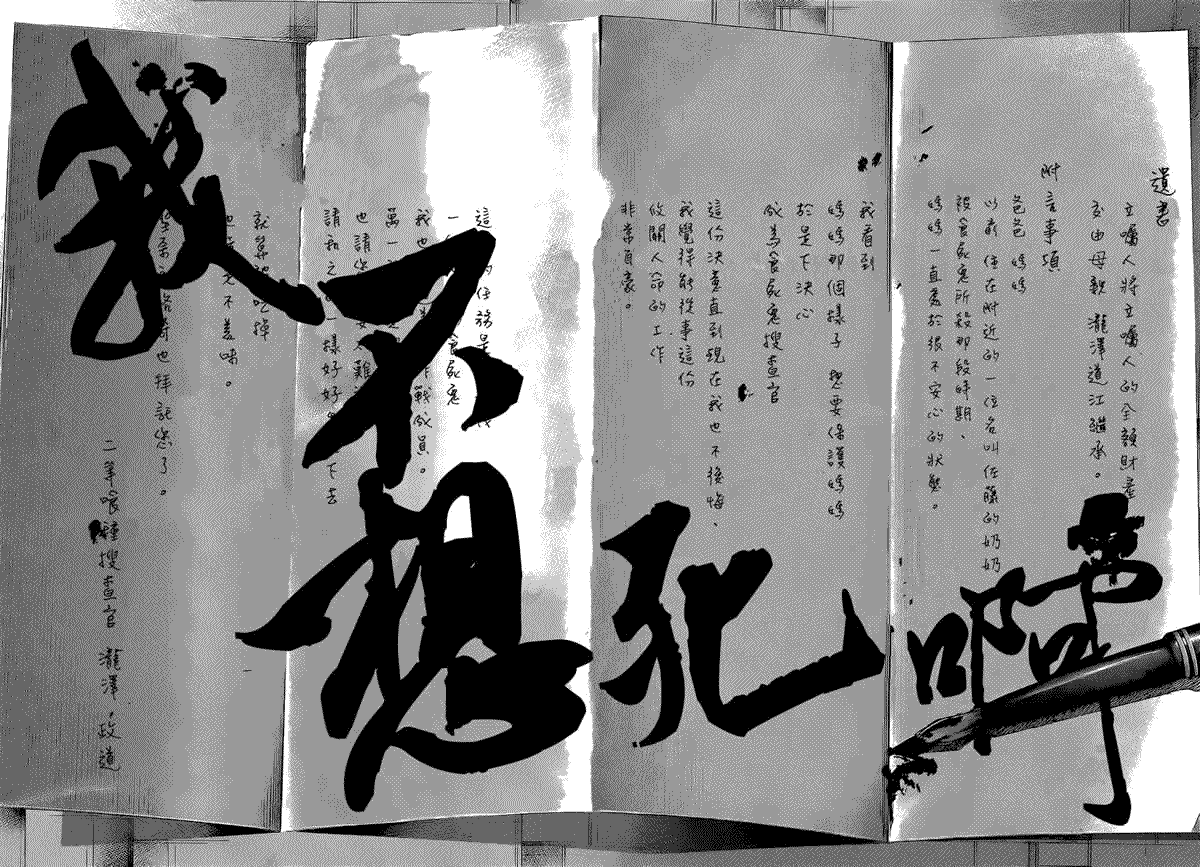 遺書
立囑人將立囑人的全額財產
交由母親 瀧澤道江繼承。
附言事項
爸爸 媽媽
以前 住在附近的一位名叫佐藤的奶奶
被食屍鬼所殺那段時期、
媽媽一直處於很不安心的狀態。
我看到
媽媽那個樣子 想要保護媽媽
於是下決心
成為食屍鬼搜查官
這份決意直到現在我也不後悔、
我覺得能從事這份
攸關人命的工作
非常自豪。
這 的任務是
一 食屍鬼
我也 作戰成員。
萬一
也請您 難
請和之 一樣好好 下去
就算被吃掉
也 不美味。
也拜託您了。
二等喰種搜查官 瀧澤 政道
我不想死啊